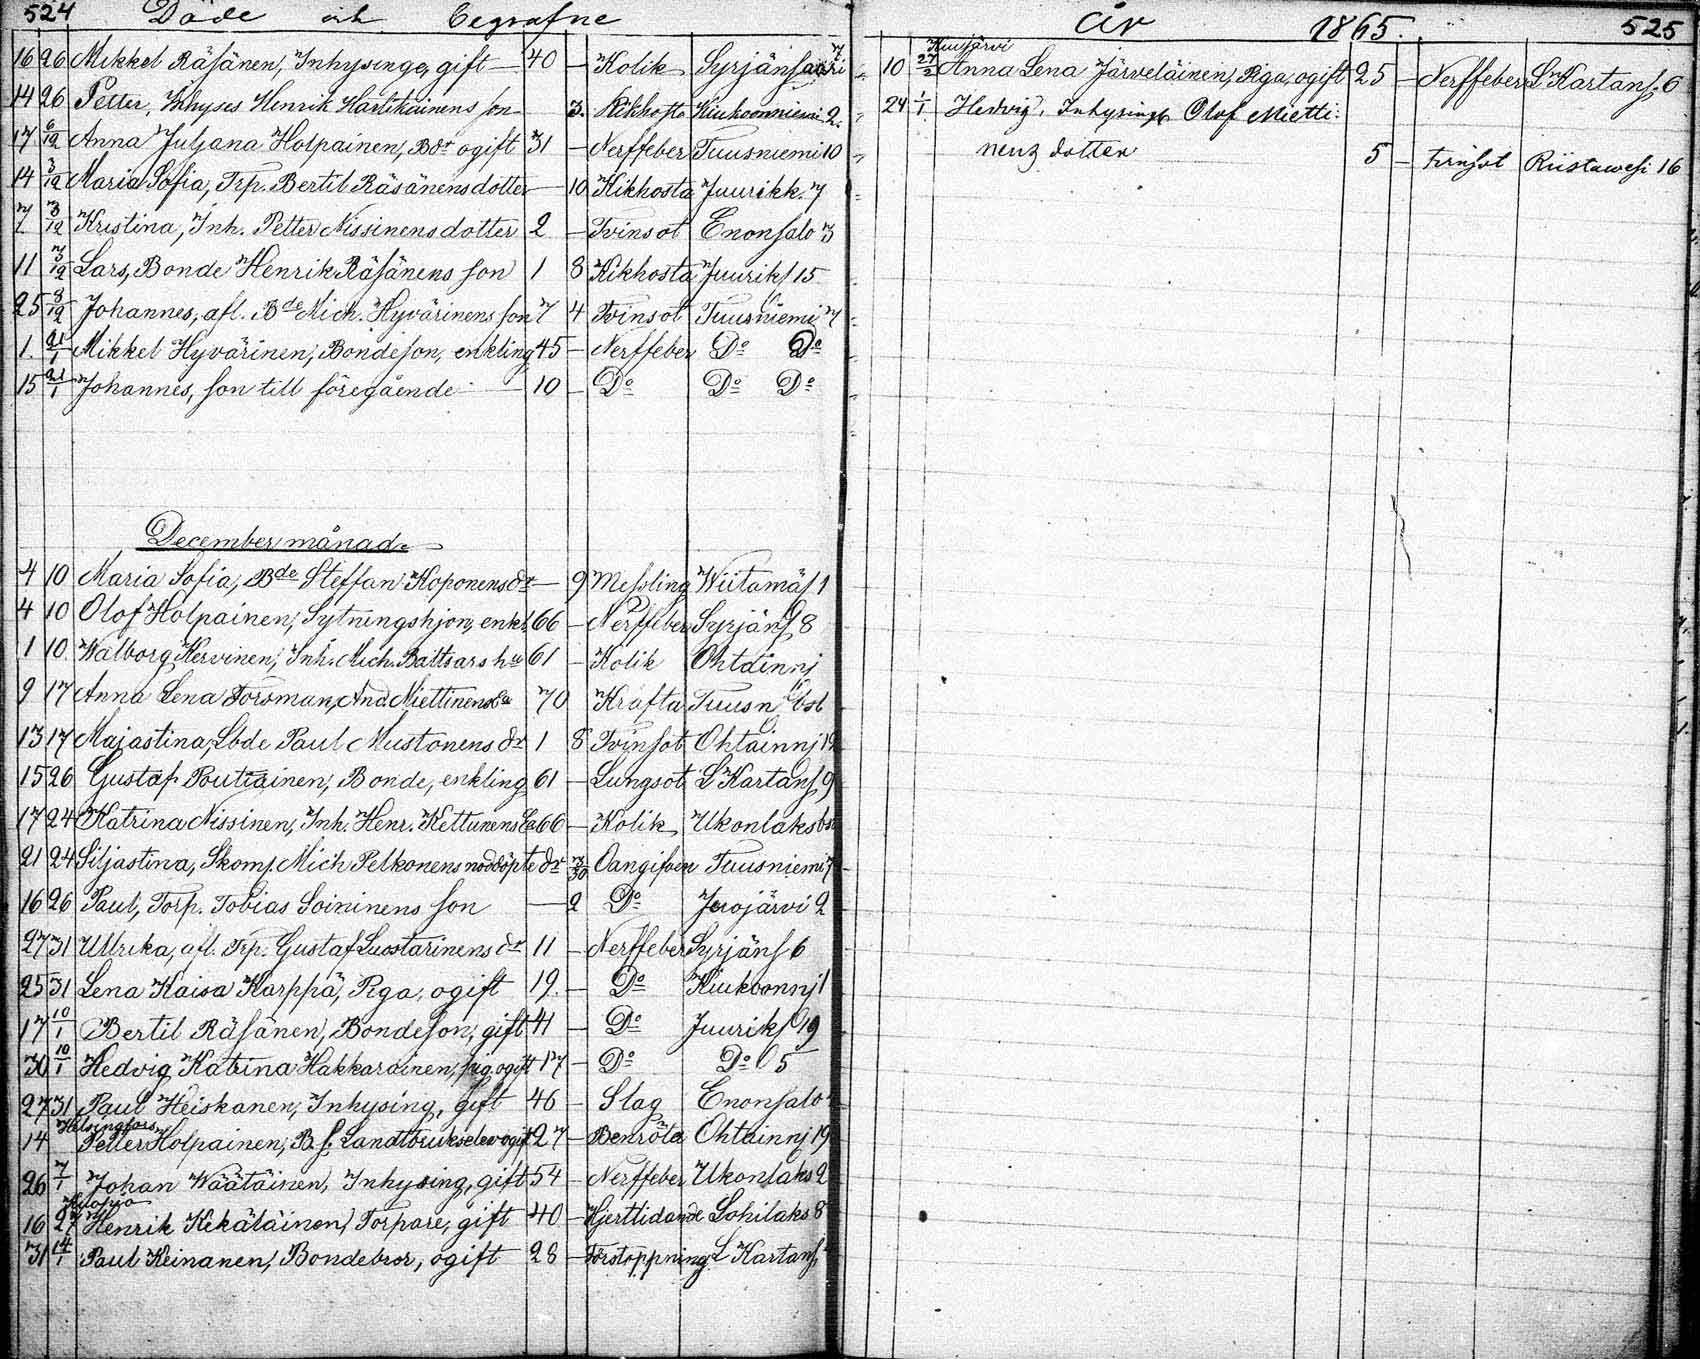 524 Döde och begrafne
16 26 Mikkel Räsänen, Inhysinge, gift 40 — Kolik Syrjänsaari 7
14 26 Petter, Inhyses Henrik Hartikainens son 3. Kikhosta Kiukoonniemi 2.
17 6/12 Anna Juljana Holpainen, Bdr ogift 31 — Nerffeber Tuusniemi 10
14 3/12 Maria Sofia, Trp. Bertil Räsänens dotter — 10 Kikhosta Juurikk. 7
7 3/12 Kristina, Inh. Petter Nissinens dotter 2 — Tvinsot Enonsalo 3
11 3/12 Lars, Bonde Henrik Räsänens son 1 8 Kikhosta Juuriks 15
25 8/12 Johannes, afl. Bde Mich. Hyvärinens son 7 4 Tvinsot Tuusniemi 7
1. 21/1 Mikkel Hyvärinen, Bondeson, enkling 45 — Nerffeber Do Do
15 21/1 Johannes, son till föregående — 10 — Do Do Do
December månad.
4 10 Maria Sofia, Bde Steffan Koponens dr — 9 Messling Wiitamäs 1
4 10 Olof Holpainen, Sytningshjon, enkl. 66 — Nerffeber Syrjäns 8
1 10 Walborg Kervinen, Inh. Mich. Battsars hu 61 — Kolik Ohtainnj
9 17 Anna Lena Forsman, And. Miettinens Ea 70 Kräfta Tuusn bst
13 17 Majastina, Lbde Paul Mustonens dr 1 8 Tvinsot Ohtainnj 19
15 26 Gustaf Poutiainen, Bonde, enkling 61 — Lungsot L Kartans 9
17 24 Katrina Nissinen, Inh. Henr. Kettunens Ea 66 — Kolik Ukonlaks bst
21 24 Siljastina, Skom. Mich Pelkonens nöddöpte dr 7/30 Oangifven Tuusniemi 7
16 26 Paul, Torp. Tobias Soininens son — 2 Do Juojärvi 2
27 31 Ullrika, afl. Trp. Gustaf Luostarinens dr 11 — Nerffeber Syrjäns 6
25 31 Lena Kaisa Karppä, Piga, ogift 19. — Do Kiukoonnj 1
17 10/1 Bertil Räsänen, Bondeson, gift 41 — Do Juuriks 19
30 10/1 Hedvig Katrina Hakkarainen, pig. ogift 17 — Do Do 5
27 31 Paul Heiskanen, Inhysing, gift 46 — Slag Enonsalo
Helsingfors
14 Petter Holpainen, B. s. Landtbrukselev ogift 27 — Benröta Ohtainnj 19
26 7/1 Johan Wäätäinen, Inhysing, gift 54 — Nerffeber Ukonlaks 2
Kuopio
16 27 Henrik Kekäläinen, Torpare, gift 40 — Hjertlidande Lohilaks 8
31 14/1 Paul Keinanen, Bondebror, ogift 28 — Förstoppning L Kartans
År 1865. 525
Kuusjärvi
10 27/2 Anna Lena Järveläinen, Piga, ogift 25 — Nerffeber L Kartans. 6
24 1/1 Hedvig, Inhysings Olof Mietti-
nens dotter 5 — Tvinsot Riistawesi 16